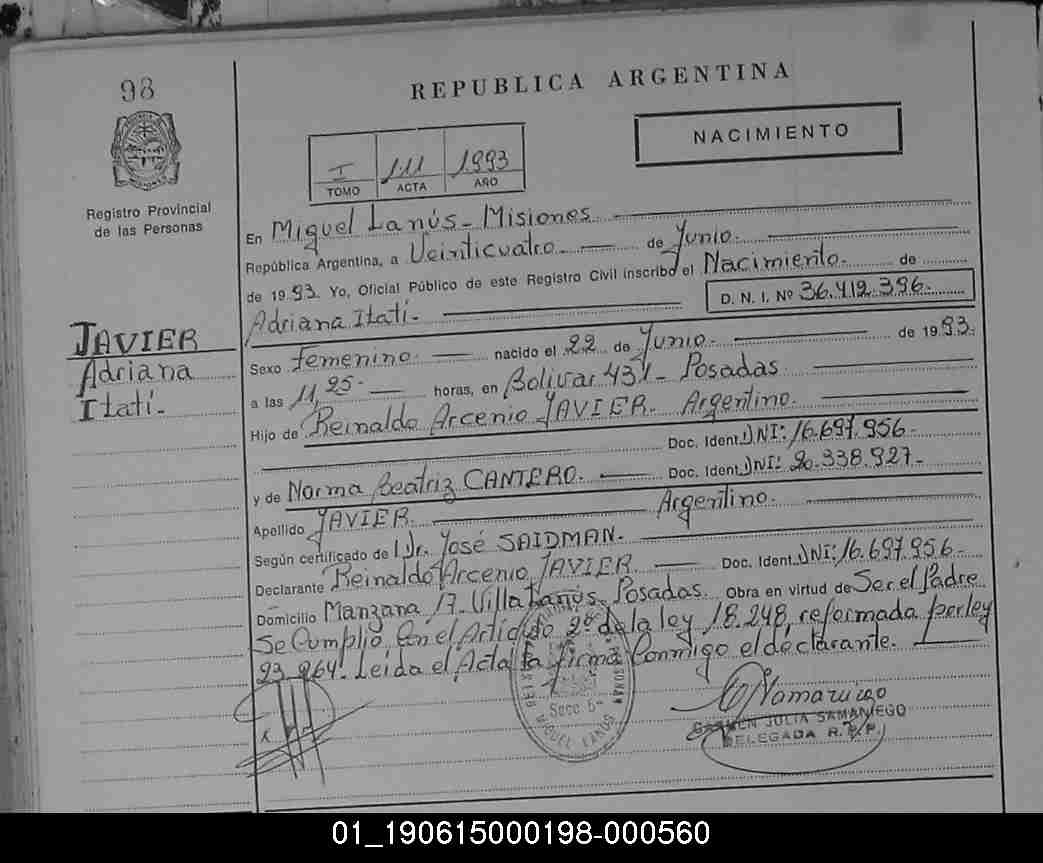 98
REPUBLICA ARGENTINA
NACIMIENTO
I 111 1993
TOMO ACTA AÑO
Registro Provincial
de las Personas
En Miguel Lanús - Misiones
República Argentina, a Veinticuatro de Junio.
de 1993. Yo, Oficial Público de este Registro Civil inscribo el Nacimiento. de
Adriana Itatí. D. N. I. Nº 36.412.396
JAVIER
Adriana
Itatí.-
Sexo Femenino. nacido el 22 de Junio. de 1993.
a las 11,25- horas, en Bolivar 431 - Posadas
Hijo de Reinaldo Arcenio JAVIER. Argentino.
Doc. Ident. DNI: 16.697.956-
y de Norma Beatriz CANTERO. Doc. Ident. DNI: 20.338.927-
Apellido JAVIER. Argentino.
Según certificado de Dr. José SAIDMAN.
Declarante Reinaldo Arcenio JAVIER. Doc. Ident. DNI: 16.697.956-
Domicilio Manzana 17. Villa Lanús. Posadas. Obra en virtud de Ser el Padre
Se Cumplió Con el Artículo 2º de la ley 18.248, reformada por ley
23.264. Leída el Acta la firma Conmigo el declarante.
Secc 5ª
MIGUEL LANUS
CARMEN JULIA SAMANIEGO
DELEGADA R. P. P.
01_190615000198-000560